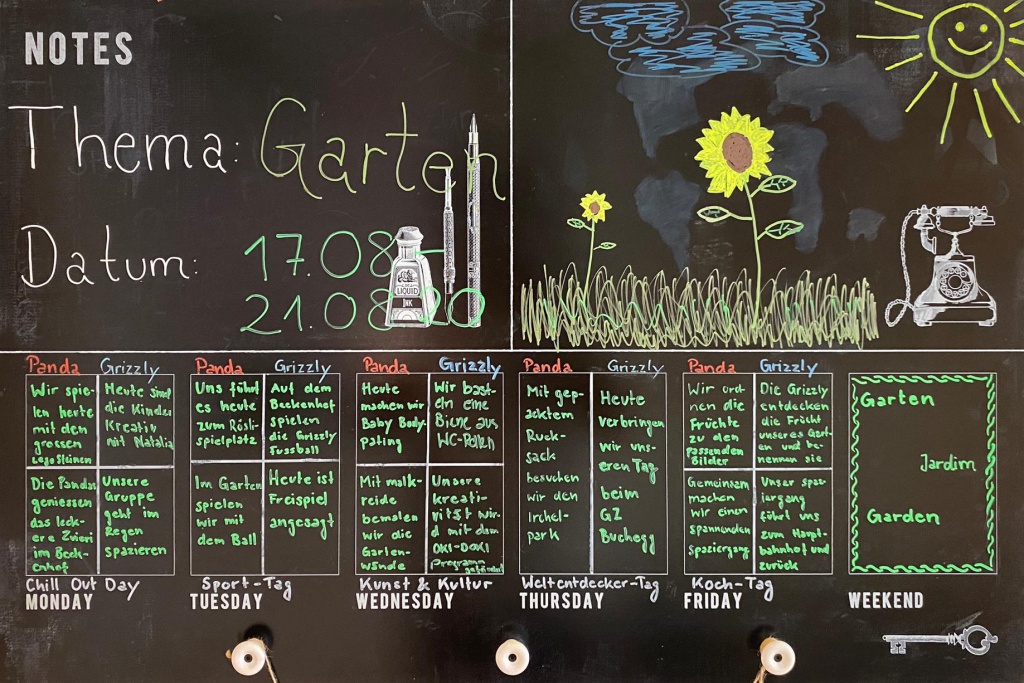 NOTES
Thema: Garten
Datum: 17.08-
21.0820
LIQUID
INK
Panda
Grizzly
Wir spie-
len heute
mit den
grossen
Lego Steinen
Heute sind
die Kinder
Kreativ
mit Natalia
Die Pandas
geniessen
das leck-
ere Zvieri
im Beck-
enhof
Unsere
Gruppe
geht im
Regen
spazieren
Chill Out Day
MONDAY
Panda
Grizzly
Uns führt
es heute
zum Rösli-
spielplatz
Auf dem
Beckenhof
spielen
die Grizzly
Fussball
Im Garten
spielen
wir mit
dem Ball
Heute ist
Freispiel
angesagt
Sport-Tag
TUESDAY
Panda
Grizzly
Heute
machen wir
Baby Body-
pating
Wir bast-
eln eine
Biene aus
WC-Rollen
Mit malk-
reide
bemalen
wir die
Garten-
wände
Unsere
kreati-
vität wir-
d mit dem
OKI-DOKI
Programm
gefördert
Kunst & Kultur
WEDNESDAY
Panda
Grizzly
Mit gep-
acktem
Ruck-
sack
besuchen
wir den
Irchel-
park
Heute
verbringen
wir uns-
eren Tag
beim
GZ
Buchegg
Weltentdecker-Tag
THURSDAY
Panda
Grizzly
Wir ord-
nen die
Früchte
zu den
passenden
Bilder
Die Grizzly
entdecken
die Frücht
unseres Gart-
en und be-
nennen sie
Gemeinsam
machen
wir einen
spannenden
Spaziergang
Unser spaz-
iergang
führt uns
zum Haupt-
bahnhof und
zurück
Koch-Tag
FRIDAY
Garten
Jardim
Garden
WEEKEND